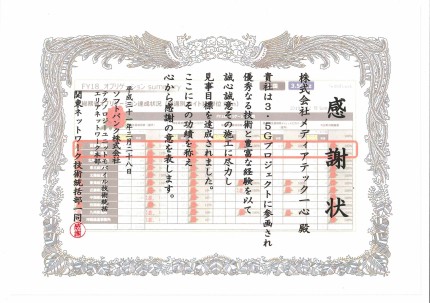 感謝状
株式会社メディアテック一心 殿
貴社は3.5Gプロジェクトに参画され
優秀なる技術と豊富な経験を以て
誠心誠意その施工に尽力し
見事目標を達成されました。
ここにその功績を称え
心から感謝の意を表します。
平成三十一年三月二十八日
ソフトバンク株式会社
テクノロジーユニットモバイル技術統括
エリアネットワーク本部
関東ネットワーク技術統括部一同